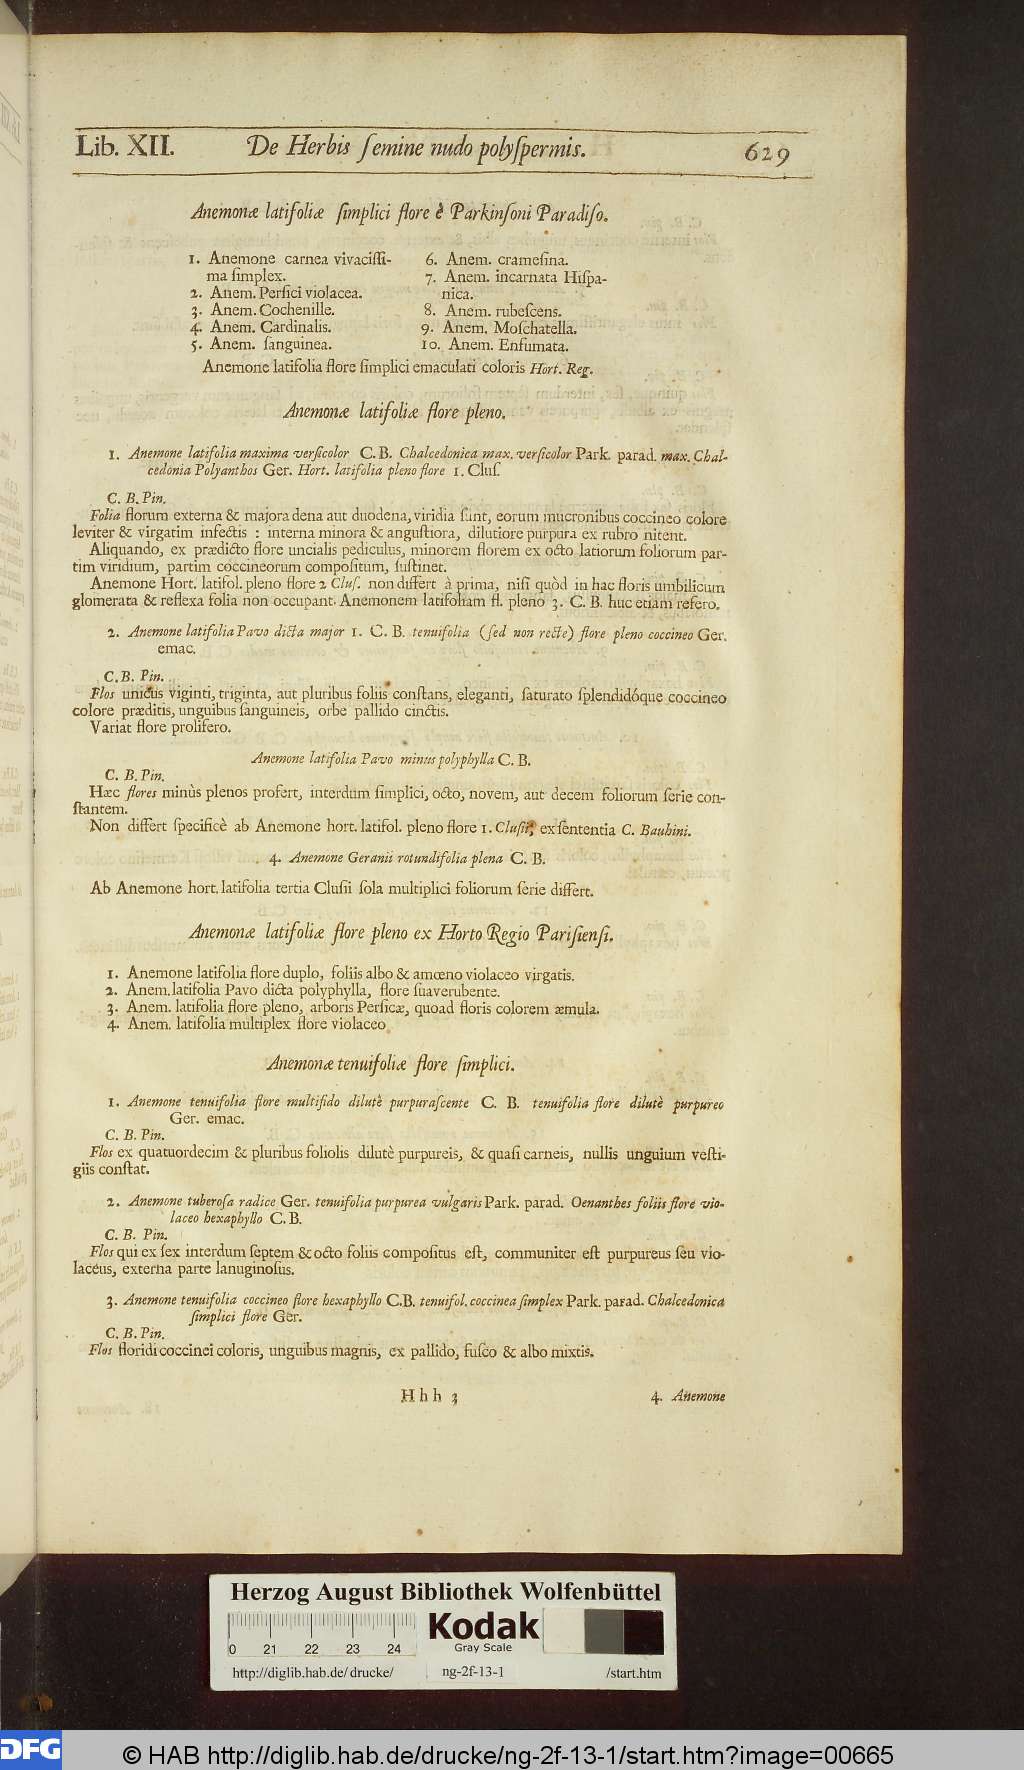 Lib. XII. De Herbis ſemine nudo polyſpermis. 629
Anemonæ latifoliæ ſimplici flore è Parkinſoni Paradiſo.
1. Anemone carnea vivaciſſi-
ma ſimplex.
2. Anem. Perſici violacea.
3. Anem. Cochenille.
4. Anem. Cardinalis.
5. Anem. ſanguinea.
6. Anem. crameſina.
7. Anem. incarnata Hiſpa-
nica.
8. Anem. rubeſcens.
9. Anem. Moſchatella.
10. Anem. Enfumata.
Anemone latifolia flore ſimplici emaculati coloris Hort. Reg.
Anemonæ latifoliæ flore pleno.
1. Anemone latifolia maxima verſicolor C. B. Chalcedonica max. verſicolor Park. parad. max. Chal-
cedonia Polyanthos Ger. Hort. latifolia pleno flore 1. Cluſ.
C. B. Pin.
Folia florum externa & majora dena aut duodena, viridia ſunt, eorum mucronibus coccineo colore
leviter & virgatim infectis : interna minora & anguſtiora, dilutiore purpura ex rubro nitent.
Aliquando, ex prædicto flore uncialis pediculus, minorem florem ex octo latiorum foliorum par-
tim viridium, partim coccineorum compoſitum, ſuſtinet.
Anemone Hort. latifol. pleno flore 2 Cluſ. non differt à prima, niſi quòd in hac floris umbilicum
glomerata & reflexa folia non occupant. Anemonem latifoliam fl. pleno 3. C. B. huc etiam refero.
2. Anemone latifolia Pavo dicta major 1. C. B. tenuifolia (ſed non recte) flore pleno coccineo Ger.
emac.
C. B. Pin.
Flos unicus viginti, triginta, aut pluribus foliis conſtans, eleganti, ſaturato ſplendidóque coccineo
colore præditis, unguibus ſanguineis, orbe pallido cinctis.
Variat flore prolifero.
Anemone latifolia Pavo minus polyphylla C. B.
C. B. Pin.
Hæc flores minùs plenos profert, interdum ſimplici, octo, novem, aut decem foliorum ſerie con-
ſtantem.
Non differt ſpecificè ab Anemone hort. latifol. pleno flore 1. Cluſii, ex ſententia C. Bauhini.
4. Anemone Geranii rotundifolia plena C. B.
Ab Anemone hort. latifolia tertia Cluſii ſola multiplici foliorum ſerie differt.
Anemonæ latifoliæ flore pleno ex Horto Regio Pariſienſi.
1. Anemone latifolia flore duplo, foliis albo & amœno violaceo virgatis.
2. Anem. latifolia Pavo dicta polyphylla, flore ſuaverubente.
3. Anem. latifolia flore pleno, arboris Perſicæ, quoad floris colorem æmula.
4. Anem. latifolia multiplex flore violaceo
Anemonæ tenuifoliæ flore ſimplici.
1. Anemone tenuifolia flore multifido dilutè purpuraſcente C. B. tenuifolia flore dilutè purpureo
Ger. emac.
C. B. Pin.
Flos ex quatuordecim & pluribus foliolis dilutè purpureis, & quaſi carneis, nullis unguium veſti-
giis conſtat.
2. Anemone tuberoſa radice Ger. tenuifolia purpurea vulgaris Park. parad. Oenanthes foliis flore vio-
laceo hexaphyllo C. B.
C. B. Pin.
Flos qui ex ſex interdum ſeptem & octo foliis compoſitus eſt, communiter eſt purpureus ſeu vio-
laceus, externa parte lanuginoſus.
3. Anemone tenuifolia coccineo flore hexaphyllo C.B. tenuifol. coccinea ſimplex Park. parad. Chalcedonica
ſimplici flore Ger.
C. B. Pin.
Flos floridi coccinei coloris, unguibus magnis, ex pallido, fuſco & albo mixtis.
Hhh 3 4. Anemone
Herzog August Bibliothek Wolfenbüttel
0 21 22 23 24
Kodak
Gray Scale
http://diglib.hab.de/drucke/ ng-2f-13-1 /start.htm
DFG
© HAB http://diglib.hab.de/drucke/ng-2f-13-1/start.htm?image=00665